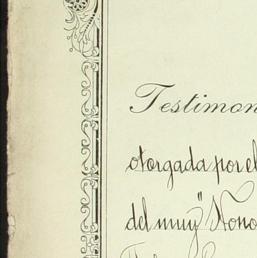 Testimon
otorgada por el
del muy " Hono